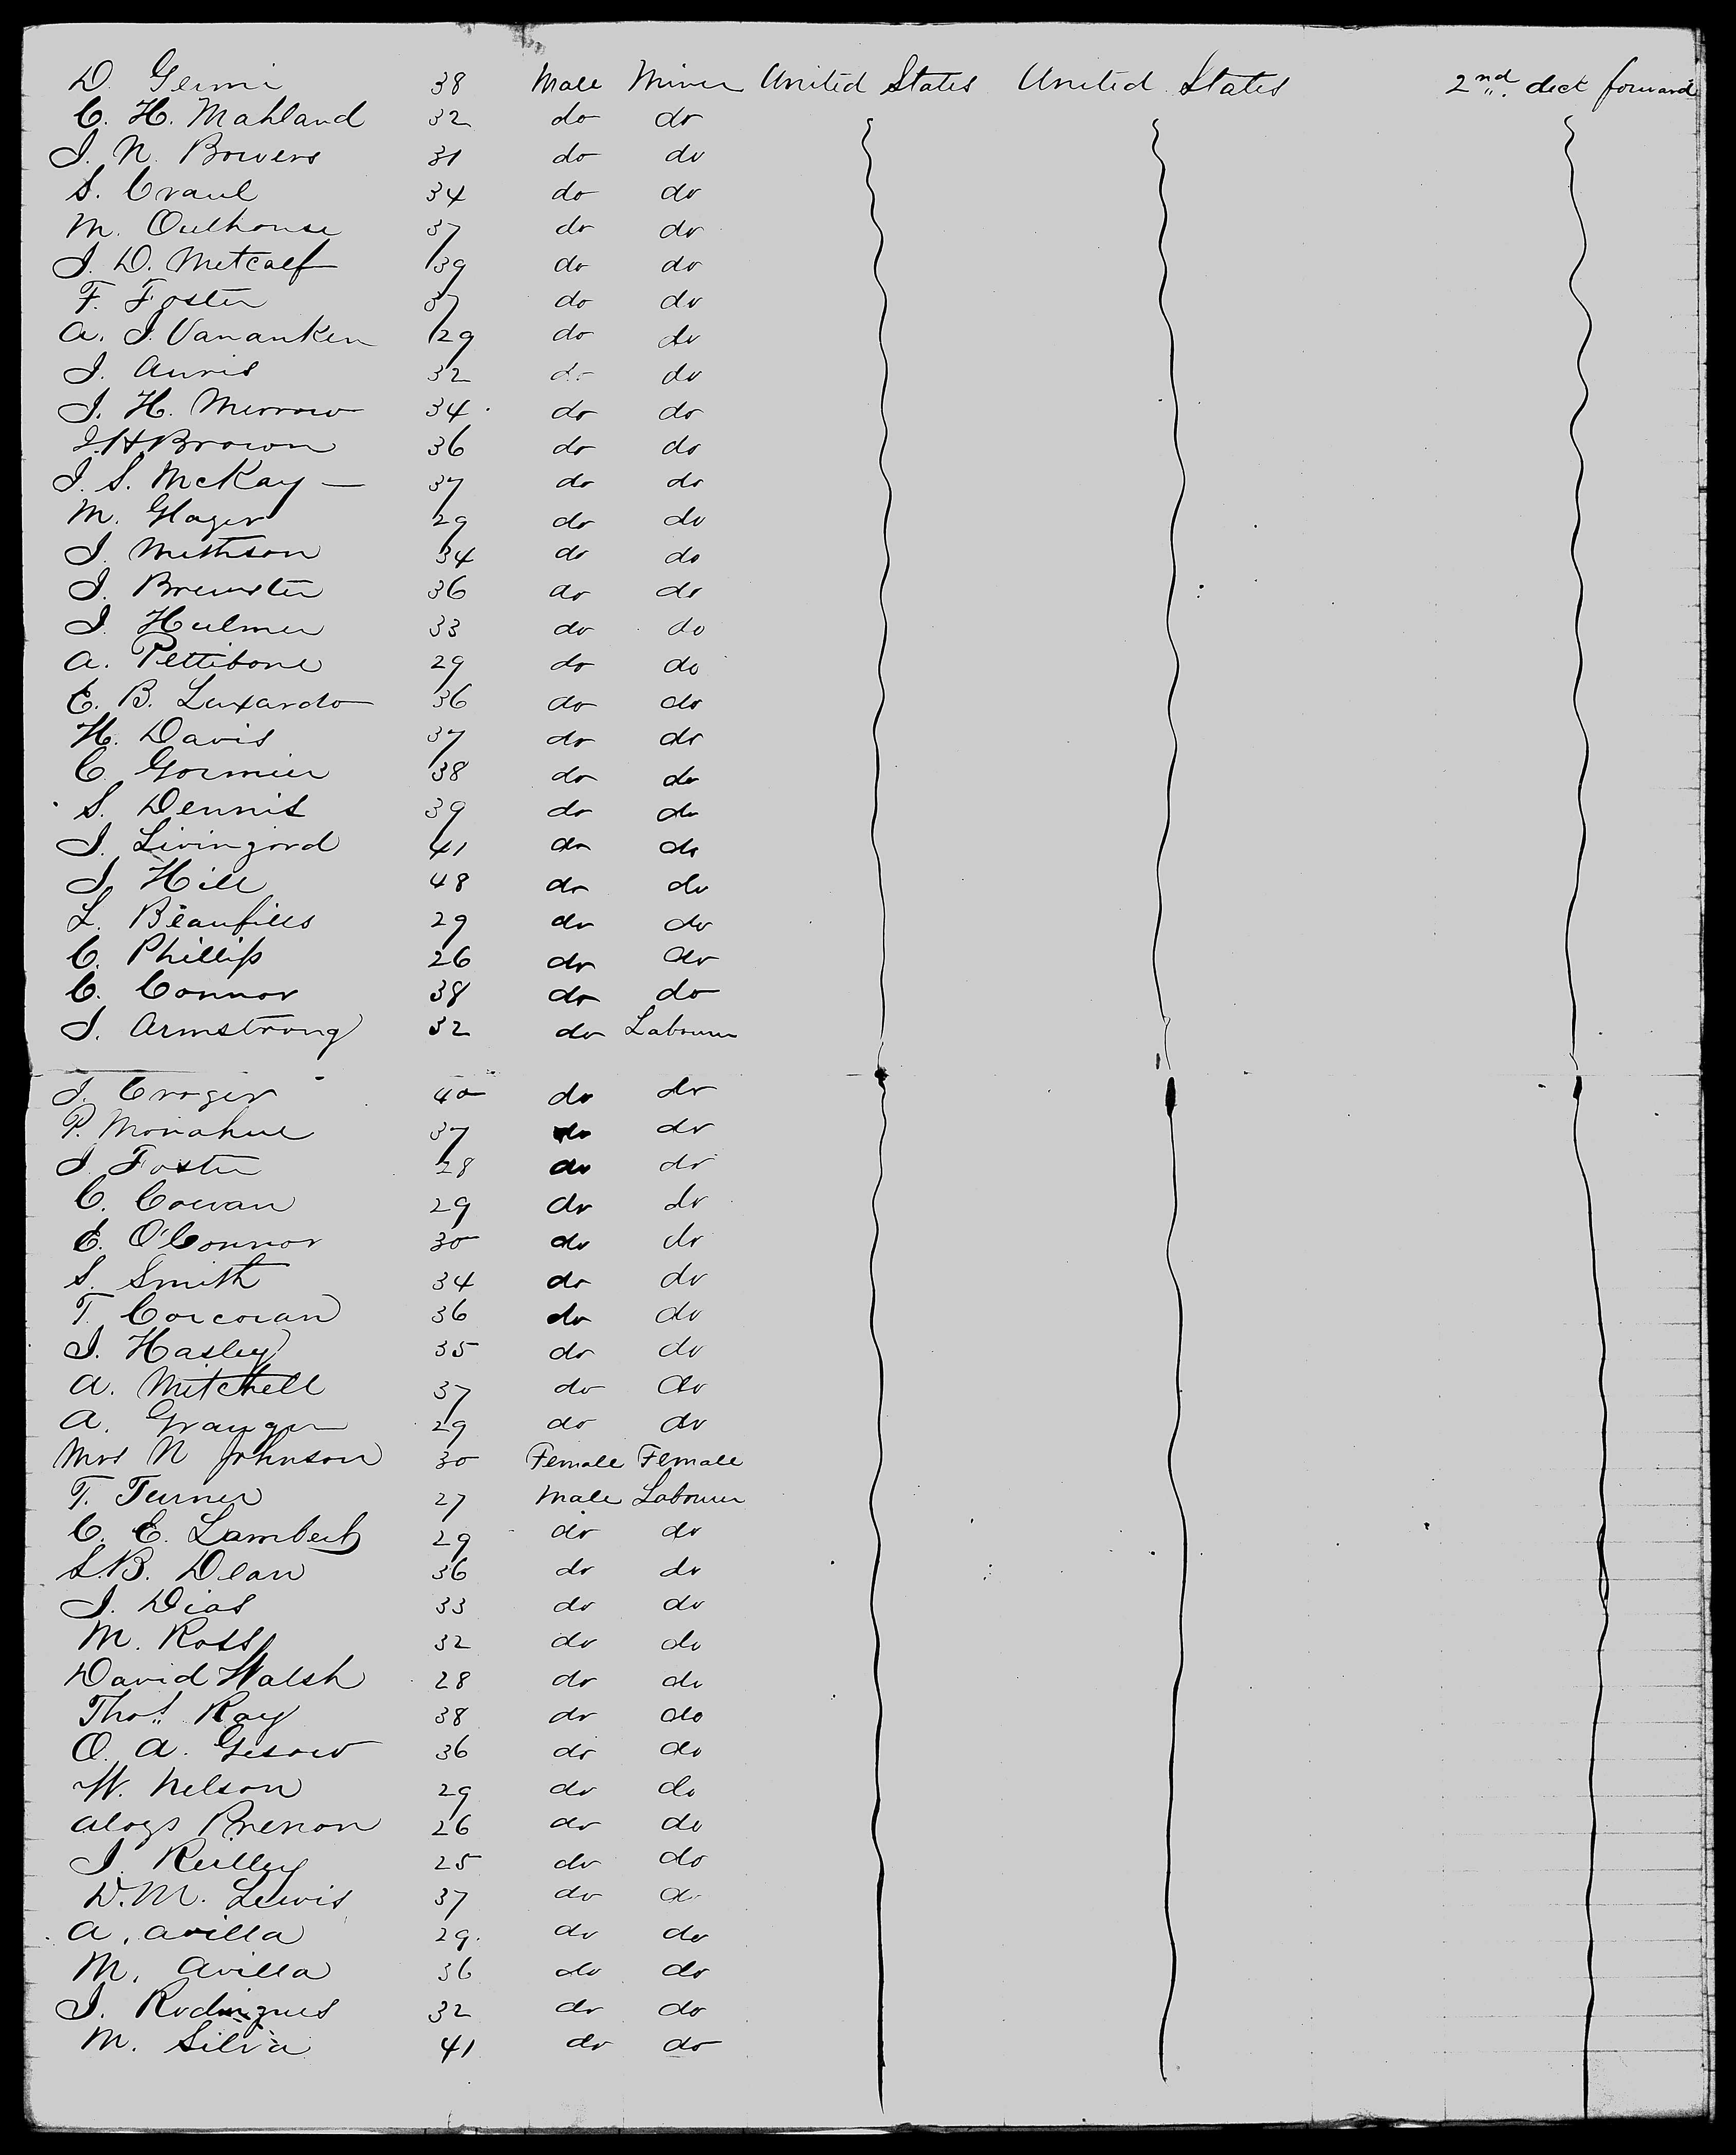 D. Germi 38 Male Miner United States United States 2nd dect forward
C. H. Mahland 32 do do
J. N. Bowers 31 do do
S. Craul 34 do do
M. Oulhouse 37 do do
J. D. Metcalf 39 do do
F. Foster 37 do do
A. J. Vananken 29 do do
J. Auris 32 do do
J. H. Merrow 34 do do
J. H Brown 36 do do
J. S. McKay — 37 do do
M. Glager 29 do do
J. Mithson 34 do do
J. Brewster 36 do do
J. Hulmer 33 do do
A. Pettibone 29 do do
E. B. Luxardo 36 do do
H. Davis 37 do do
C. Gormier 38 do do
S. Dennis 39 do do
J. Livingord 41 do do
J. Hill 48 do do
L. Beaufills 29 do do
C. Phillips 26 do do
C. Connor 38 do do
J. Armstrong 32 do Labourer
J. Croger 40 do do
P. Monahue 37 do do
J. Foster 28 do do
C. Cowan 29 do do
E. O'Connor 30 do do
S. Smith 34 do do
T. Corcoran 36 do do
J. Hasley 35 do do
A. Mitchell 37 do do
A. Granger 29 do do
Mrs N Johnson 30 Female Female
T. Turner 27 Male Labourer
C. E. Lambert 29 do do
S. B. Dean 36 do do
J. Dias 33 do do
M. Ross 32 do do
David Walsh 28 do do
Thos. Ray 38 do do
O. A. Gesow 36 do do
W. Nelson 29 do do
Aloys 26 do do
J. Reilley 25 do do
D. M. Lewis 37 do d
A. Avilla 29 do do
M. Avilla 36 do do
J. Rodrigues 32 do do
M. Silva 41 do do